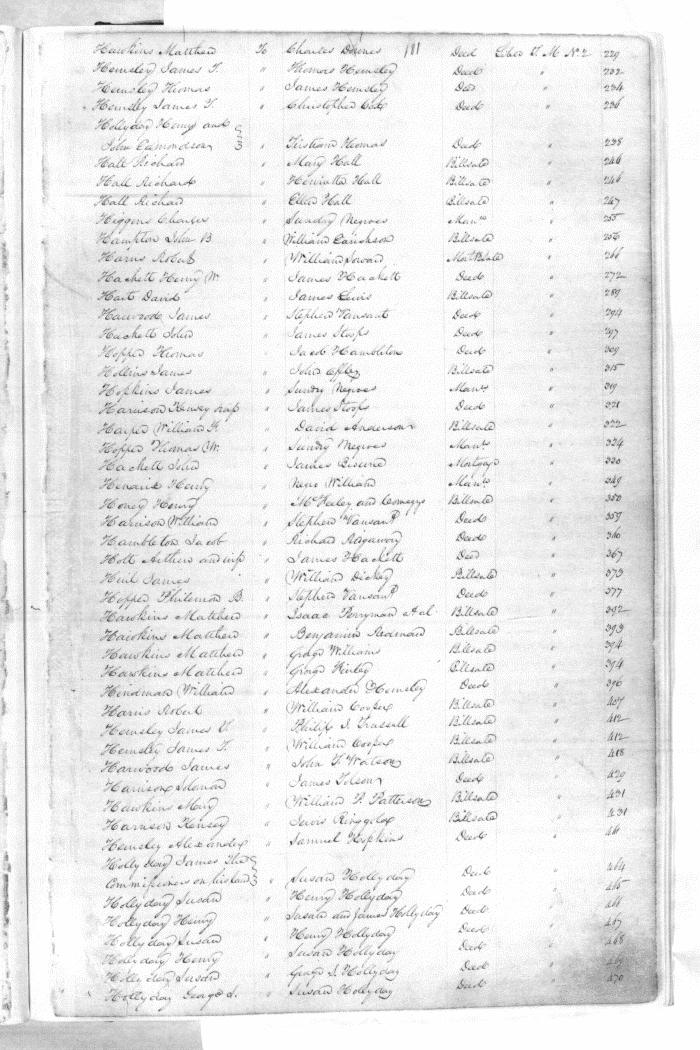 Hawkins Matthew To Charles Downes 181 Deed Liber T. M. No. 2 229
Hemsley James T. " Thomas Hemsley Deed " 232
Hemsley Thomas " James Hemsley Deed " 234
Hemsley James T. " Christopher Cox Deed " 236
Hollyday Henry and
John Edmondson " Tristram Thomas Deed " 238
Hall Richard " Mary Hall Billsale " 246
Hall Richard " Henrietta Hall Billsale " 246
Hall Richard " Ellen Hall Billsale " 247
Higgins Charles " Sunday Negroes Manu " 255
Hampton John B. " William Billsale " 256
Harris Robert " William Seward Mort Bsale " 266
Hackett Henry W. " James Hackett Deed " 272
Hart David " James Lewis Billsale " 289
Harwood James " Stephen Vansant Deed " 294
Hackett John " James Stoops Deed " 297
Hopper Thomas " Jacob Hambleton Deed " 309
Hollins James " John Billsale " 315
Hopkins James " Sundry Negroes Manu " 319
Harrison Kensey " James Stoops Deed " 321
Harper William H. " David Anderson Billsale " 322
Hopper Thomas W. " Sundry Negroes Manu " 324
Hackett John " James Mortgage " 330
Hendrix Henry " Negro William Manu " 349
Honey Henry " McFeeley and Comegys Billsale " 350
Harrison William " Stephen Vansant Deed " 359
Hambleton Jacob " Richard Ragaway Deed " 346
Holt Arthur and wife " James Hackett Deed " 367
James " William Dickey Billsale " 373
Hopper Philemon B. " Stephen Vansant Deed " 377
Hawkins Matthew " Isaac Perryman et al Billsale " 392
Hawkins Matthew " Benjamin Redman Billsale " 393
Hawkins Matthew " George Williams Billsale " 394
Hawkins Matthew " George Finley Billsale " 394
Hindman William " Alexander Hemsley Deed " 396
Harris Robert " William Cooper Billsale " 407
Hemsley James T. " Philip I. Trussell Billsale " 412
Hemsley James T. " William Cooper Billsale " 412
Harwood James " John T. Watson Billsale " 418
Harrison Solomon " James Tolson Deed " 429
Hawkins Mary " William P. Patterson Billsale " 431
Harrison Kensey " Lewis Ringold Billsale " 431
Hemsley Alexander " Samuel Hopkins Deed " 461
Hollyday James Thos
Commissioners on his land " Susan Hollyday Deed " 464
Hollyday Susan " Henry Hollyday Deed " 465
Hollyday Henry " Susan and James Hollyday Deed " 466
Hollyday Susan " Henry Hollyday Deed " 467
Hollyday Henry " Susan Hollyday Deed " 468
Hollyday Susan " George S. Hollyday Deed " 469
Hollyday George S. " Susan Hollyday Deed " 470